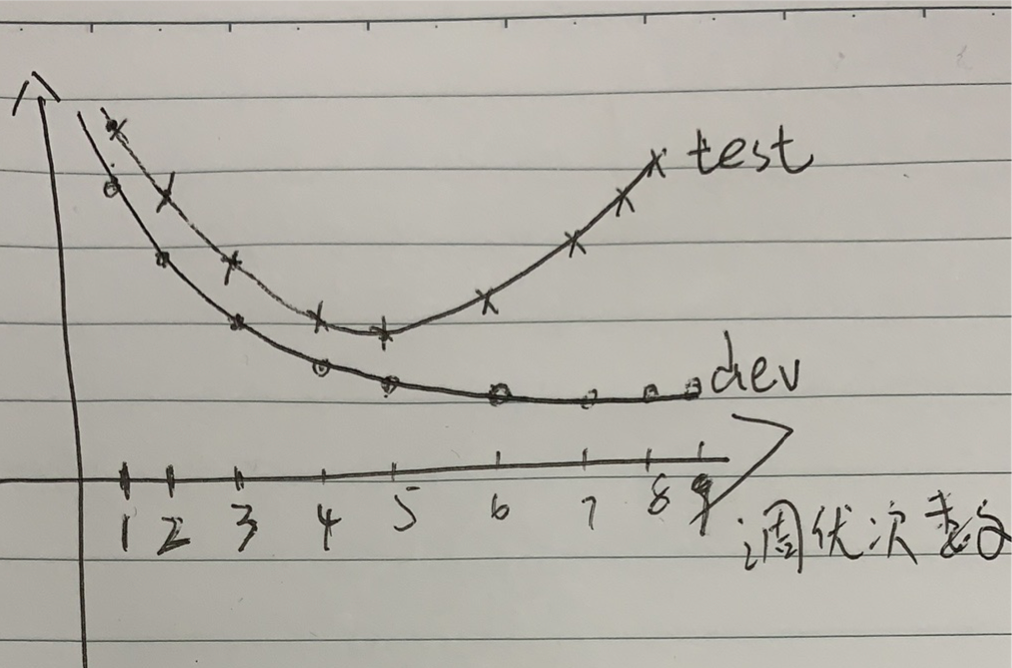 test
dev
1 2 3 4 5 6 7 8 9
调优次数